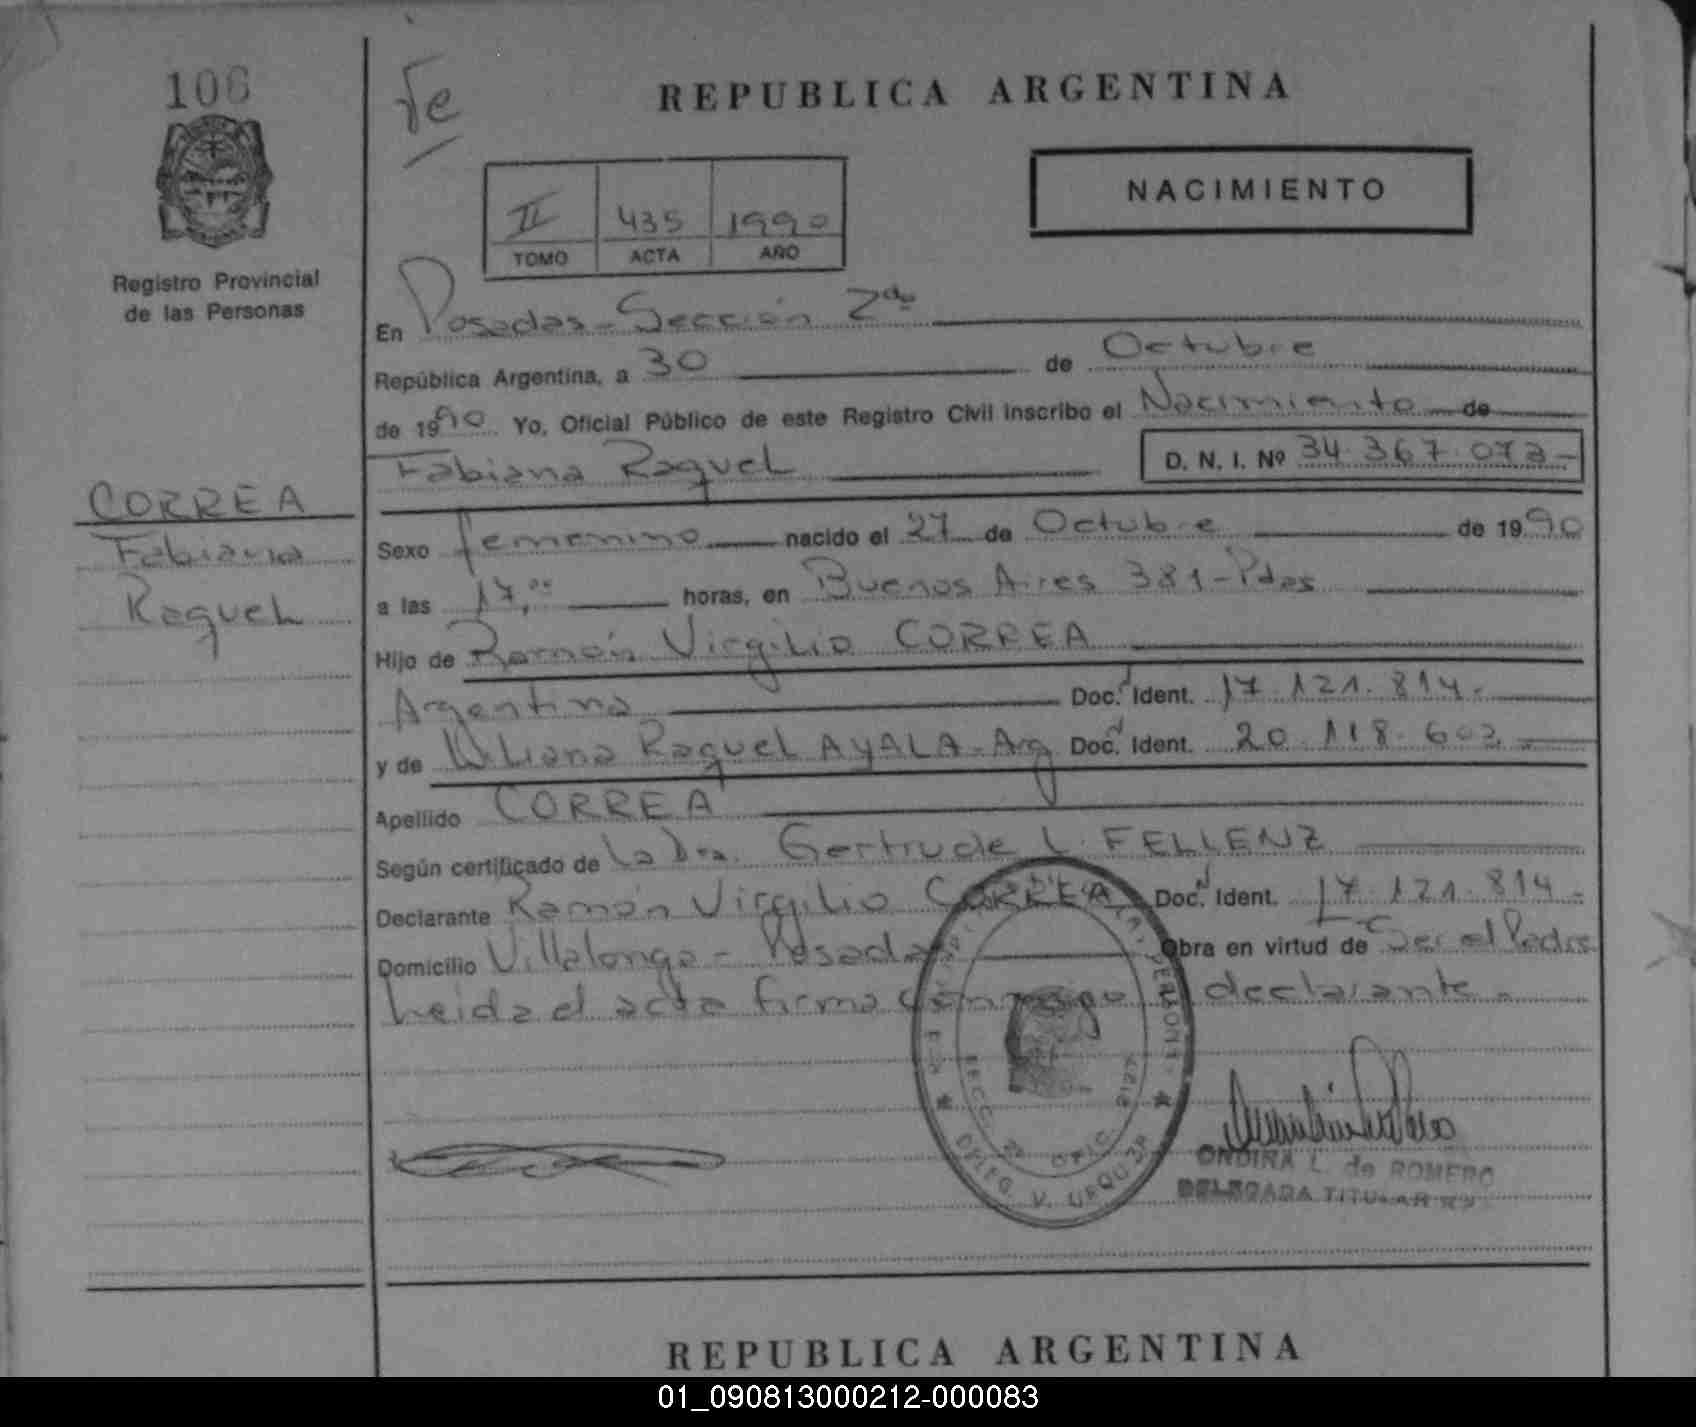 106
REPUBLICA ARGENTINA
NACIMIENTO
II 435 1990
TOMO ACTA AÑO
Registro Provincial
de las Personas
En Posadas - Sección 2da
República Argentina, a 30 de Octubre
de 1990 Yo, Oficial Público de este Registro Civil inscribo el Nacimiento de
Fabiana Raquel D. N. I. Nº 34.367.073-
CORREA
Fabiana
Raquel
Sexo femenino nacido el 27 de Octubre de 1990
a las 17,00 horas, en Buenos Aires 381-Pdas
Hijo de Ramón Virgilio CORREA
Argentino Doc. Ident. 17.121.814.-
y de Liliana Raquel AYALA-Arg Doc. Ident. 20.118.602.-
Apellido CORREA
Según certificado de La Dra. Gertrude L. FELLENZ
Declarante Ramón Virgilio CORREA Doc. Ident. 17.121.814.-
Domicilio Villalonga - Posadas Obra en virtud de Ser el Padre
Leida el acta firma conmigo declarante.
DELEG. V. URQUIZA
ONDINA L. de ROMERO
DELEGADA TITULAR
REPUBLICA ARGENTINA
01_090813000212-000083